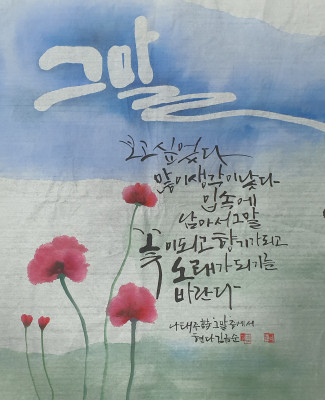 그 말
보고 싶었다
많이 생각이 났다
입속에
남아서 그 말
꽃이 되고 향기가 되고
노래가 되기를
바란다
나태주 '그 말' 중에서